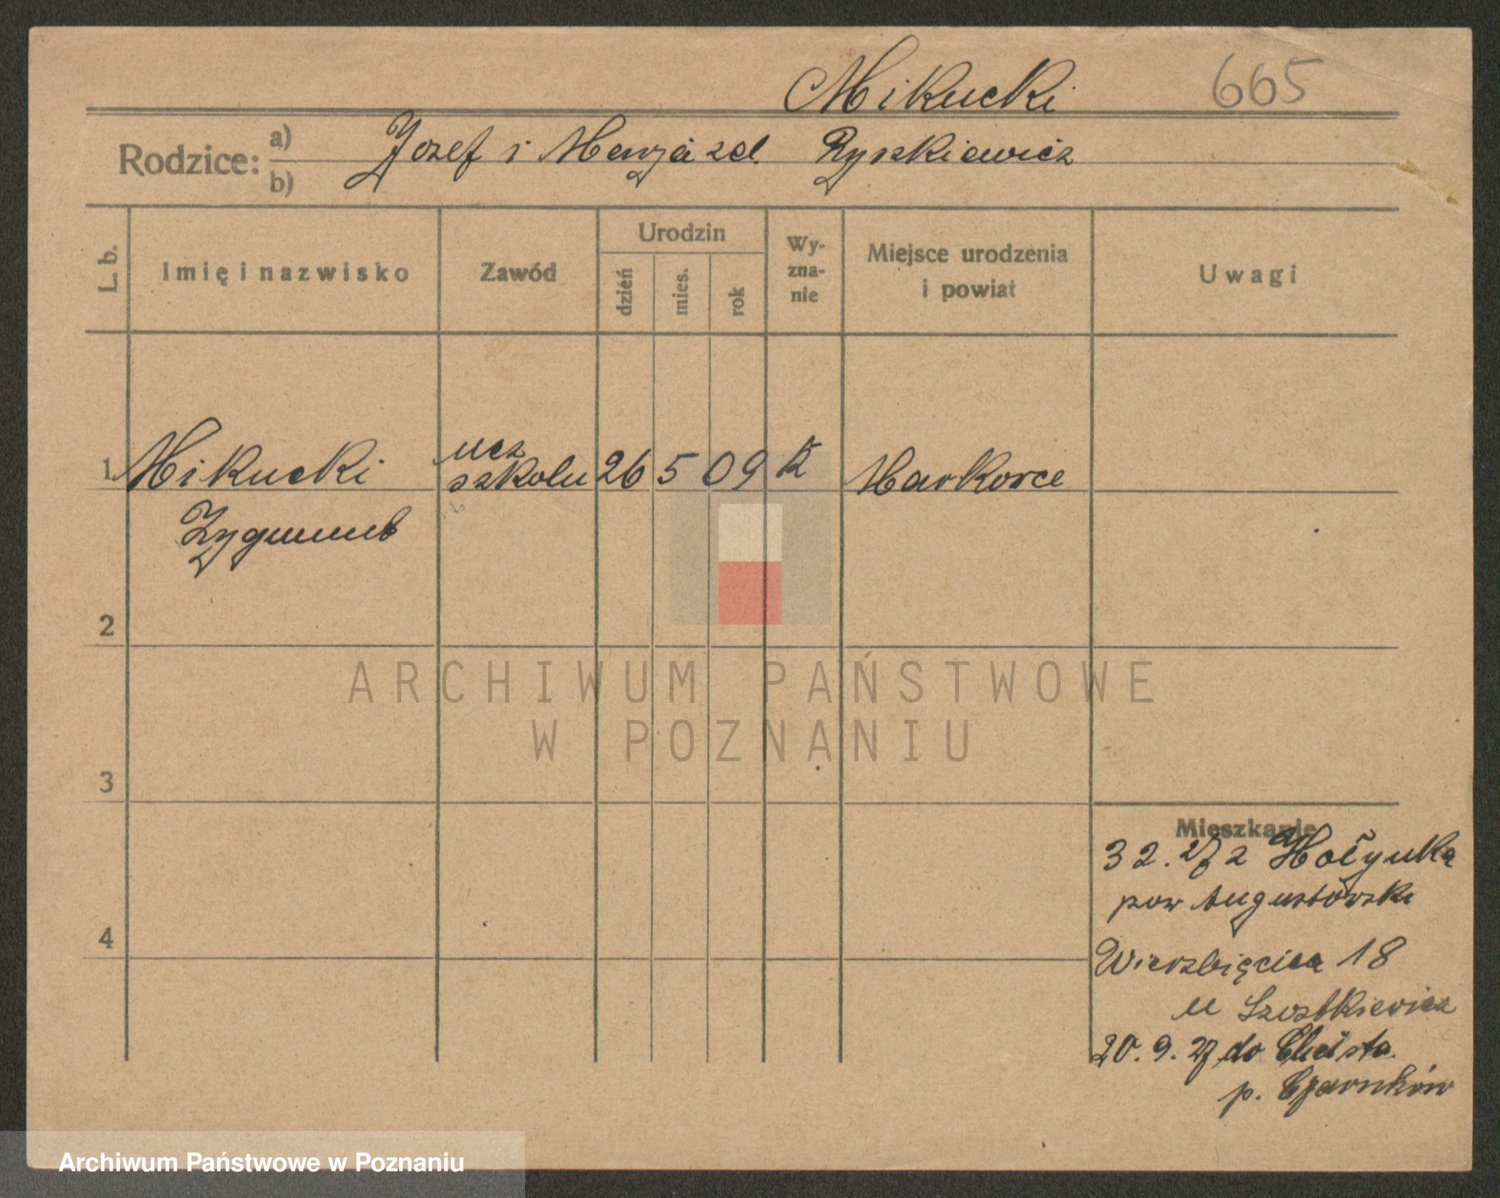 Mikucki 665
Rodzice: a) b) Jozef i Maryja zd. Ryszkiewicz
L. b.
Imię i nazwisko
Zawód
Urodzin
dzień
mies.
rok
Wy-
zna-
nie
Miejsce urodzenia
i powiat
Uwagi
1 Mikucki ucz szkolu 26 5 09 k Markowce
Zygmunt
2
3
4
ARCHIWUM PAŃSTWOWE
W POZNANIU
Mieszkanie
3 2. 27 z Hołynka
pow Augustowski
Wierzbięcice 18
u Szostkiewicz
20. 9. 27 do
p. Czarnków
Archiwum Państwowe w Poznaniu